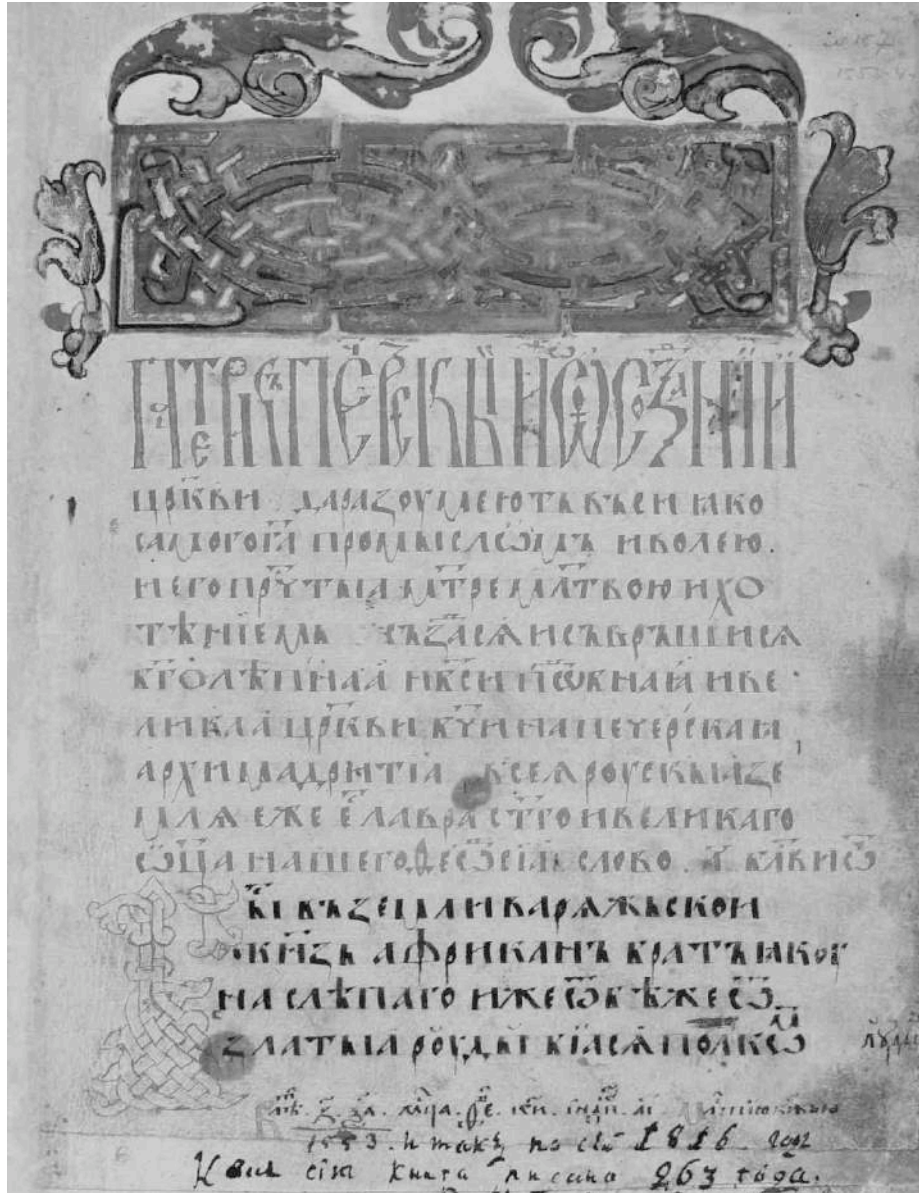 ПАТЕРИКЪ ПЕЧЕРСКЫИ Ѿ СОЗДАНІИ
ЦР҃КВИ ДА РАЗОУМѢЮТЬ ВЬСИ ꙖКО
САМОГО ГА҃ ПРОМЫСЛѠМЪ И ВОЛЕЮ.
И ЕГО ПРЧ҃ТЫА МТ҃РЕ МЛ҃ТВОЮ И ХО
ТѢНІЕМЬ СЪЗДАСѦ И СЪВРЪШИСѦ
БГ҃ОЛѢПНАА НБ҃СИ ПОДОБНАА И ВЕ
ЛИКАА ЦР҃КВИ БЧ҃ИНА ПЕЧЕРСКАА
АРХИМАДРИТІА ВСЕѦ РОУСКЫА ЗЕ
МЛѦ ЕЖЕ Е҃ ЛАВРА СТ҃ГО И ВЕЛИКАГО
Ѿ҃ЦА НАШЕГО ѲЕѠ҃СІА СЛОВО. А҃. БЛ҃ВИ Ѿ
БЫ ВЪ ЗЕМЛИ ВАРѦЖЬСКОИ
КН҃ЗЬ АФРИКАНЪ БРАТЪ ꙖКОУ
НА СЛѢПАГО ИЖЕ Ѿ҃БѢЖЕ Ѿ҃
ЗЛАТЫА РОУДЫ БІАСѦ ПОЛКѠ
1553. и такъ по сей 1816 годъ
сіѧ книга писана 263 года.